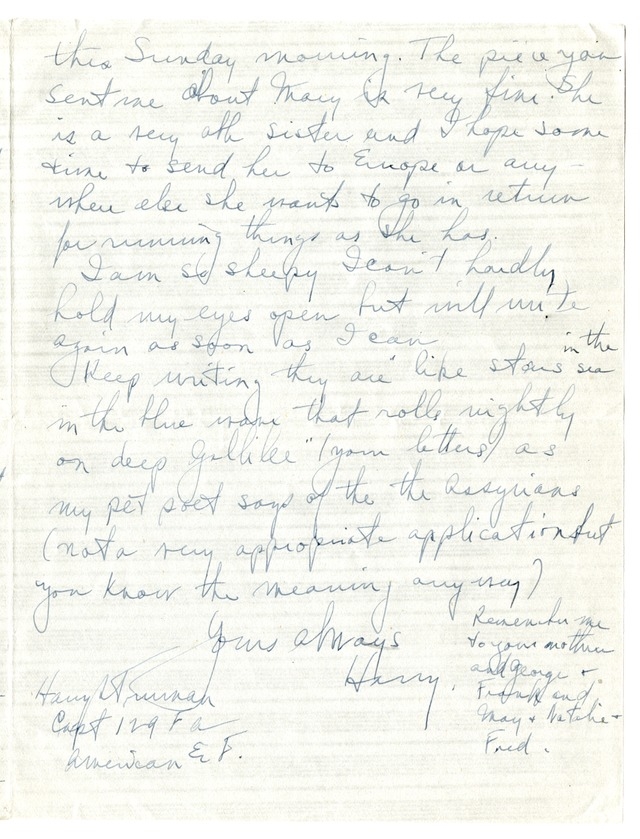 this Sunday morning. The piece you
sent me about Mary is very fine. She
is a very sister and I hope some
time to send her to Europe or any-
where else she wants to go in return
for running things as she has.
I am so sleepy I can't hardly
hold my eyes open but will write
again as soon as I can
Keep writing they are "like stars in the sea
in the blue wave that rolls nightly
on deep Gallilee" (your letters) as
my pet poet says of the the Assyrians
(not a very appropriate application but
you know the meaning anyway)
Yours always
Harry.
Harry S Truman
Capt 129 F a
American E F.
Remember me
to your mother
and George &
Frank and
May & Natalie &
Fred.